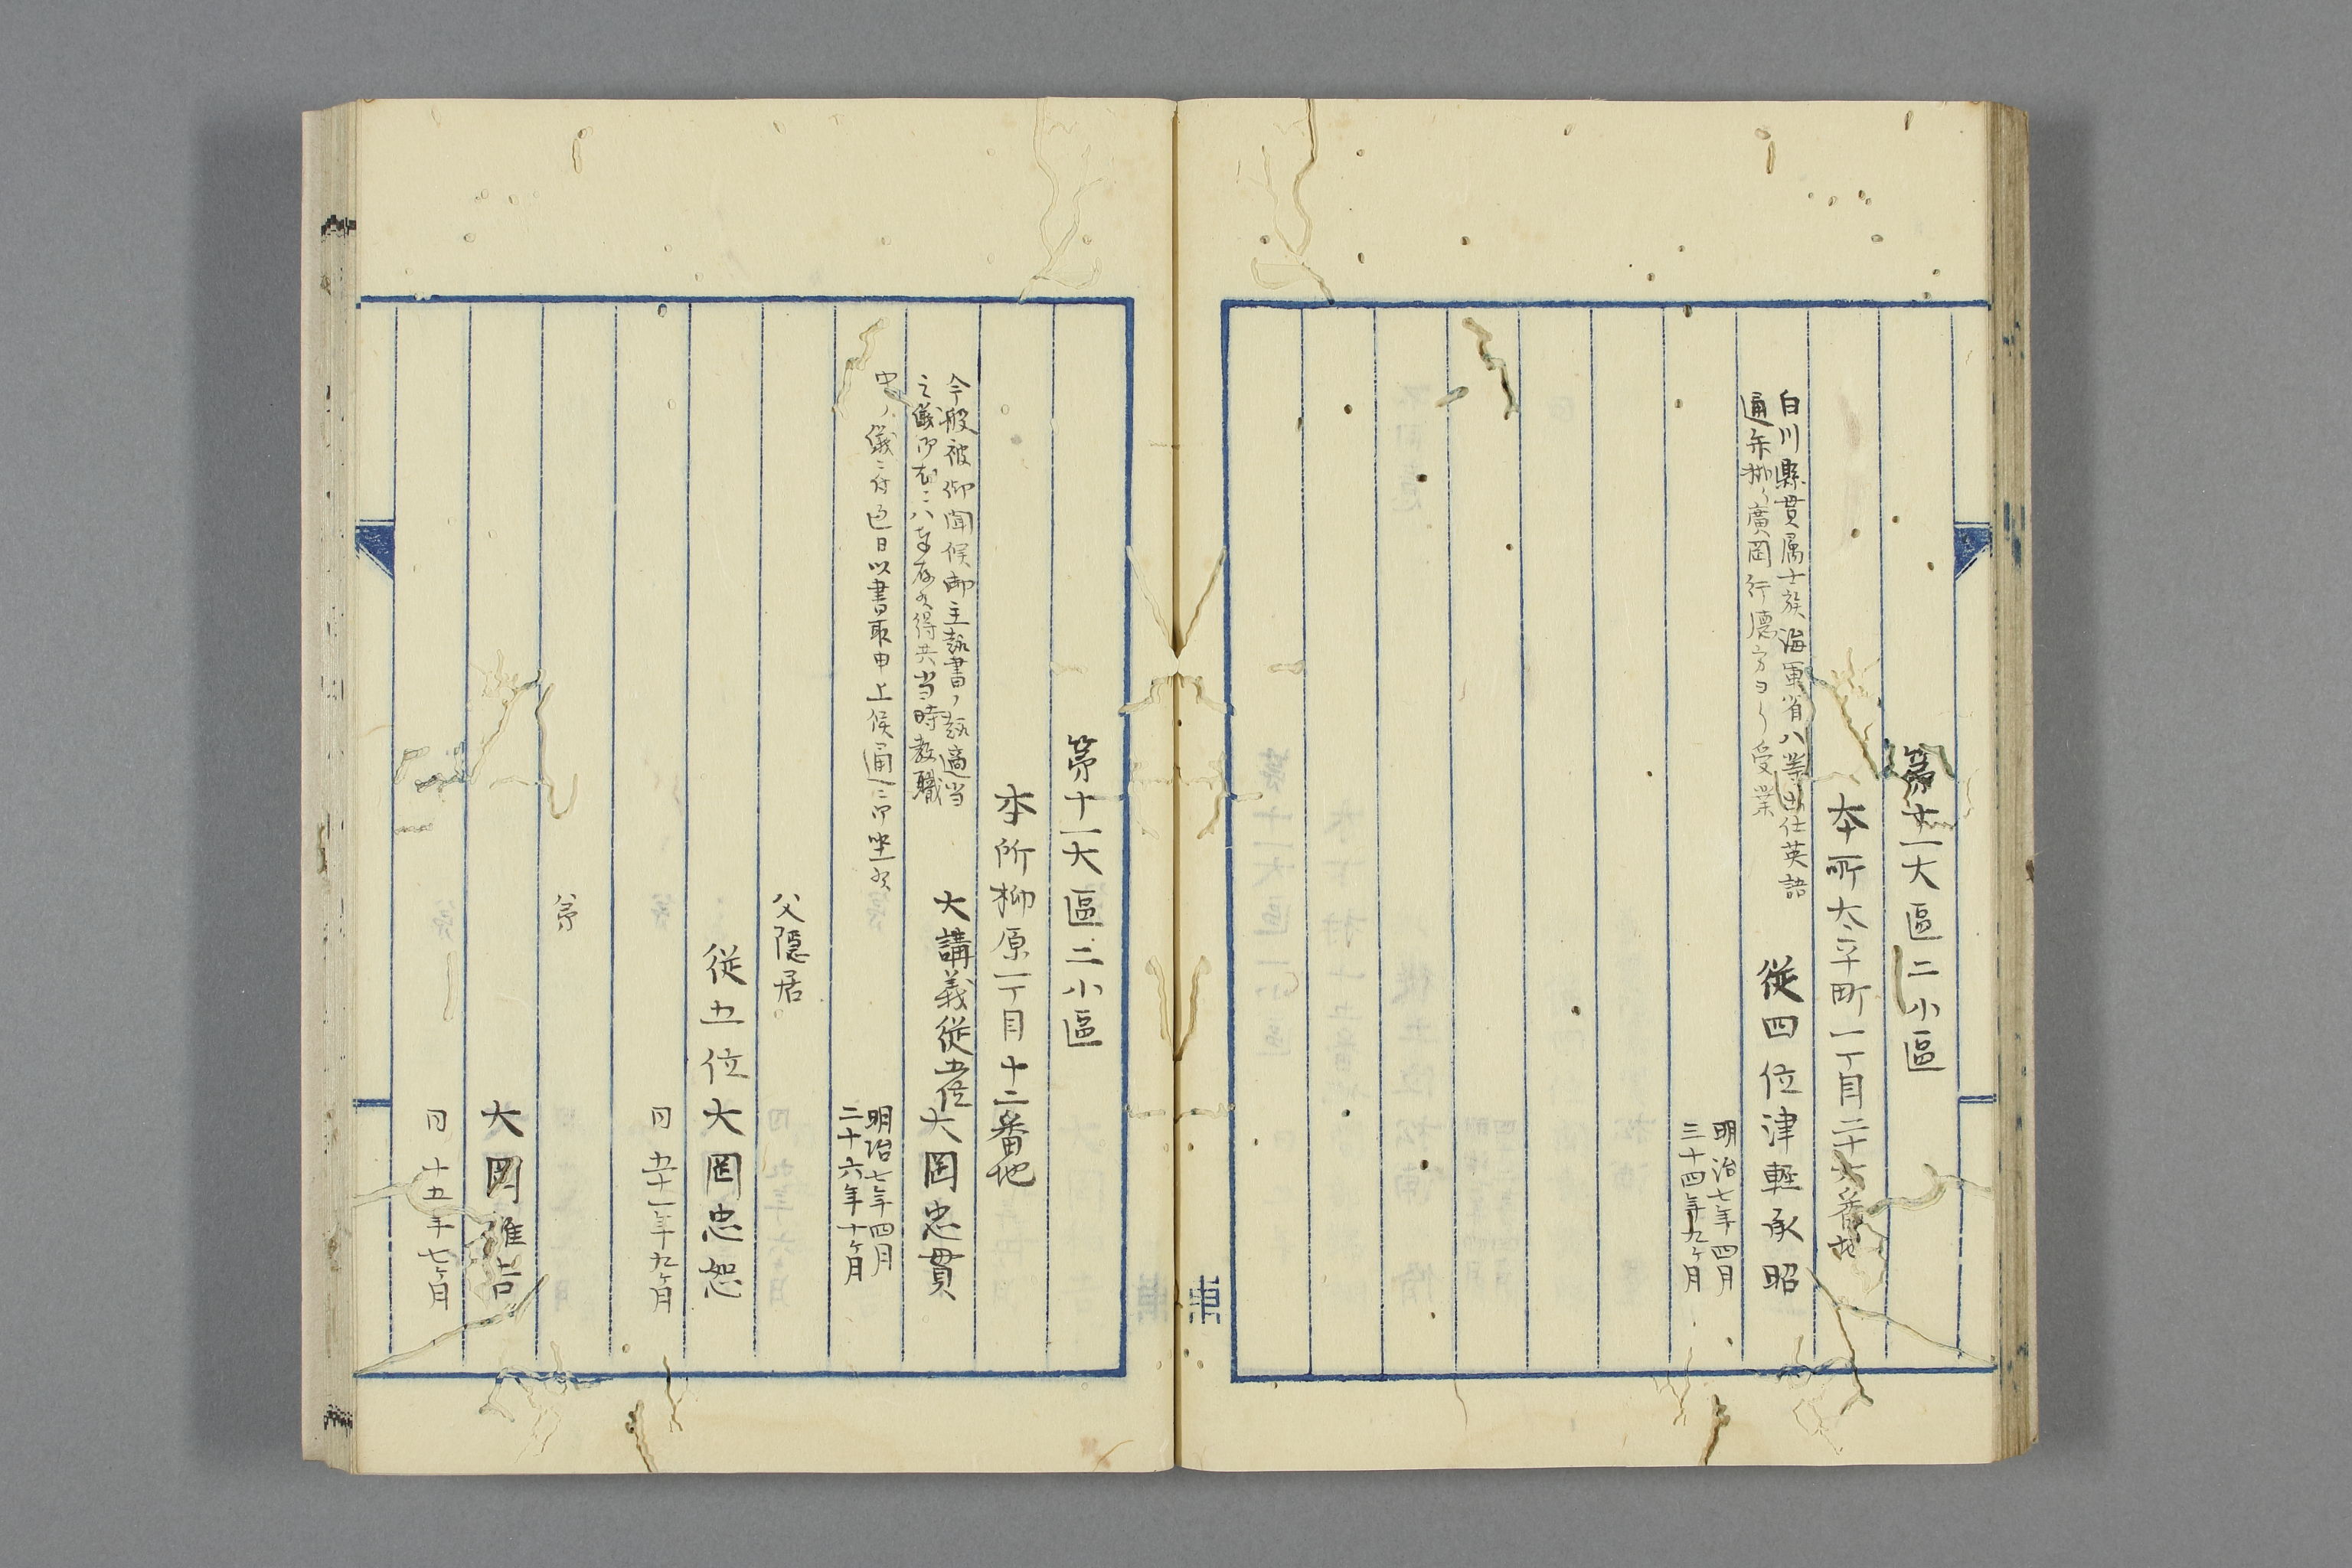 第十一大區二小區
本所太平町一丁目二十六番地
白川縣貫属士族海軍省八等出仕英語
通弁掛廣岡行德方ヨリ受業
従四位津軽承昭
明治七年四月
三十四年九ヶ月
第十一大區二小區
本所柳原一丁目十二番地
今般被御聞候御主
之儀 当時教職
中ノ儀ニ付此日以書取申上候通ニ御坐候
大講義従五位大岡忠貫
明治七年四月
二十六年十ヶ月
父隠居
従五位大岡忠恕
同五十一年九ヶ月
弟
大岡雄吉
同十五年七ヶ月
東